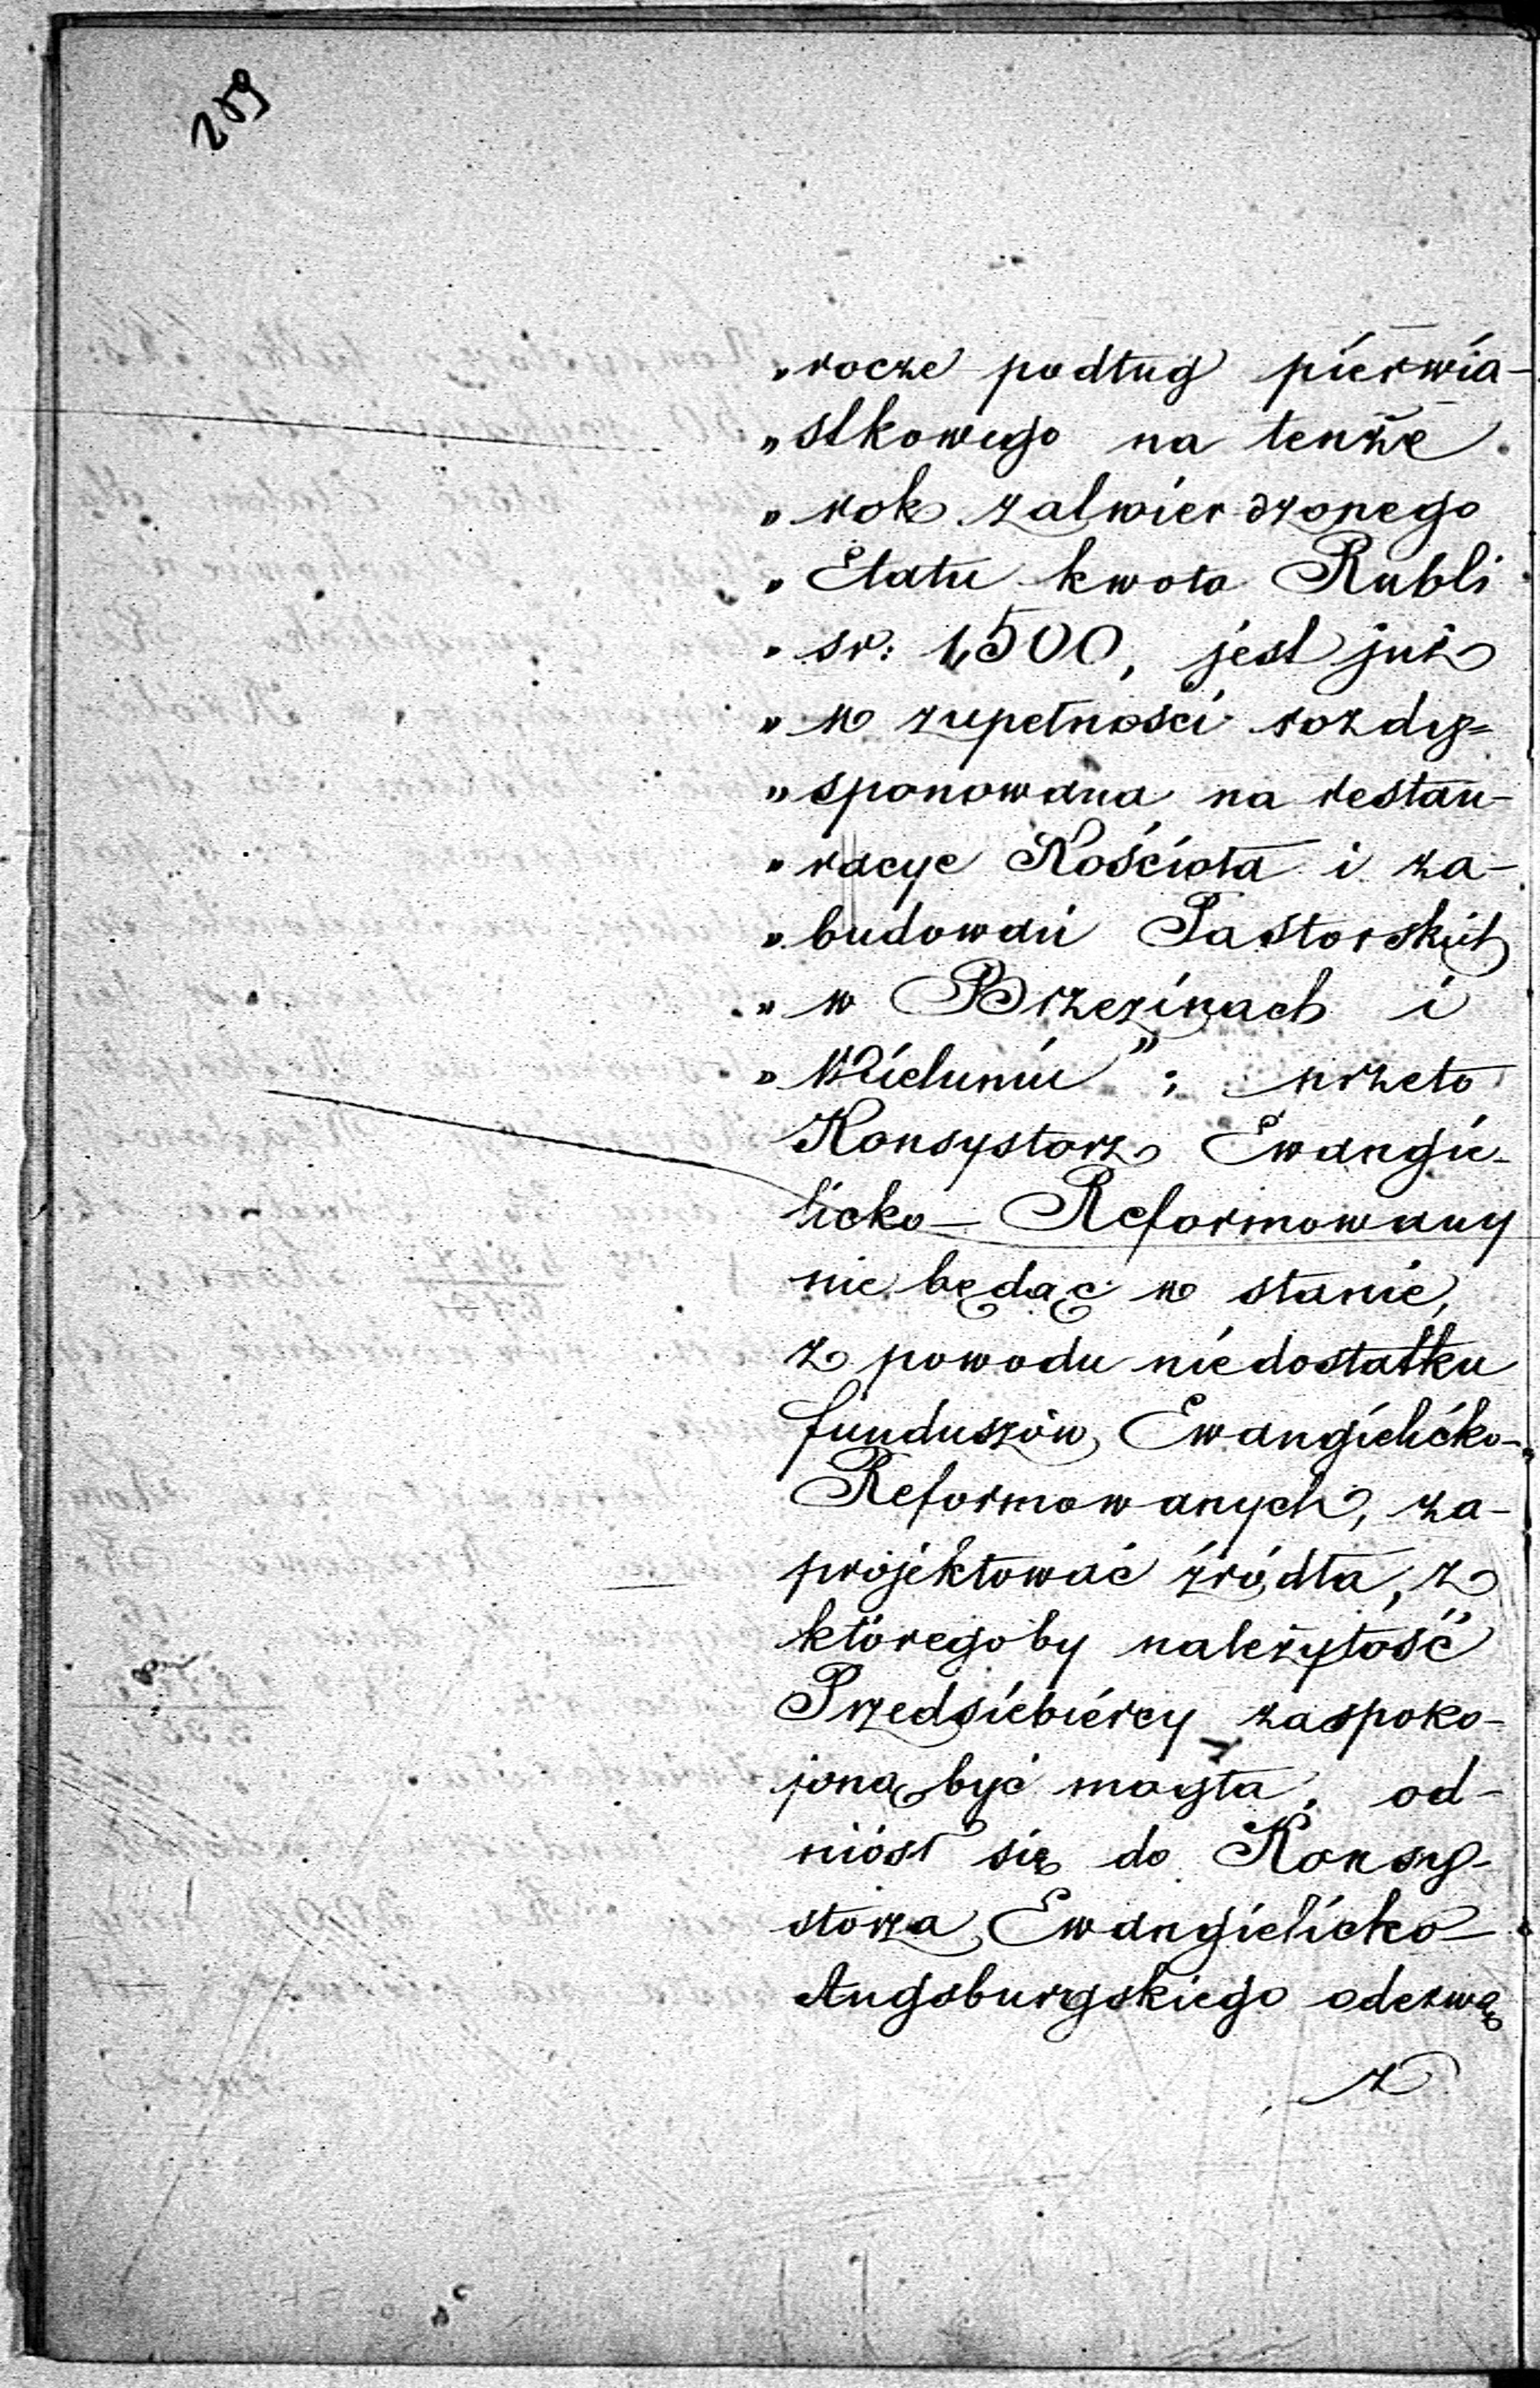 209
„rocze podług pierwia-
„stkowego na tenże
„rok zatwierdzonego
„Etatu kwota Rubli
„sr: 1,500, jest już
„w zupełności rozdy=
„sponowana na restau-
„racye Kościoła i za-
„budowań Pastorskich
„w Brzezinach i
„Wieluniu”; przeto
Konsystorz Ewangie-
licko-Reformowany
nie będąc w stanie,
z powodu niedostatku
funduszów Ewangielicko-
Reformowanych, za-
projektować źródła, z
któregoby należytość
Przedsiebiercy zaspoko-
joną być mogła, od-
niósł się do Konsy-
storza Ewangielicko-
Augsburgskiego odezwą
z